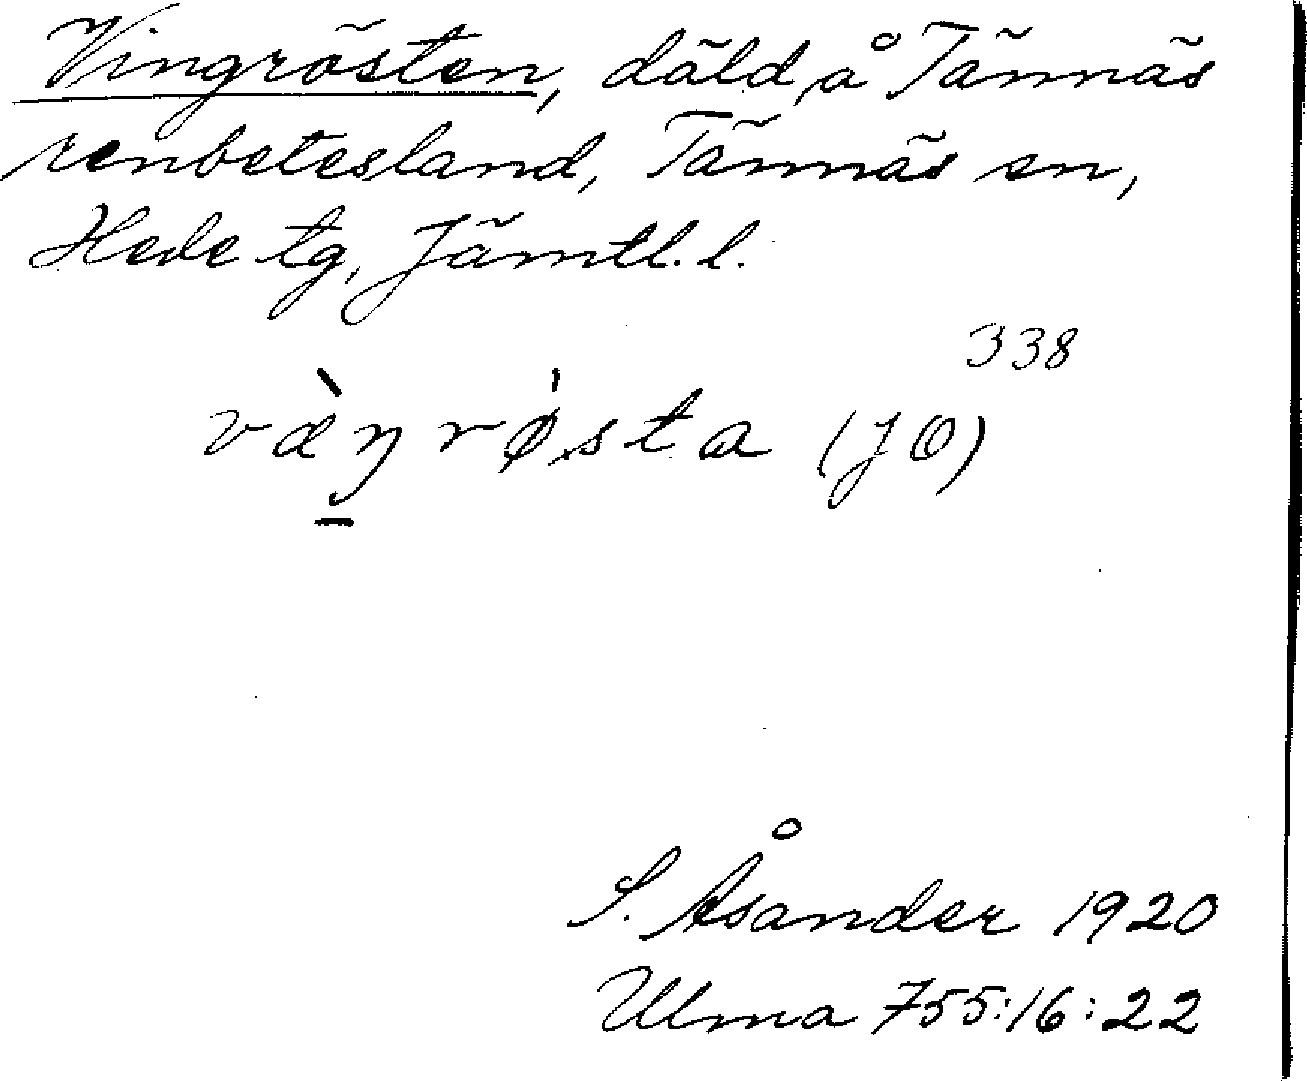 Vingrösten, däld å Tännäs
renbetesland, Tännäs sn,
Hede tg, Jämtl. l.
338
væ̀ŋrø̍sta (JO)
S. Åsander 1920
Ulma 755:16:22